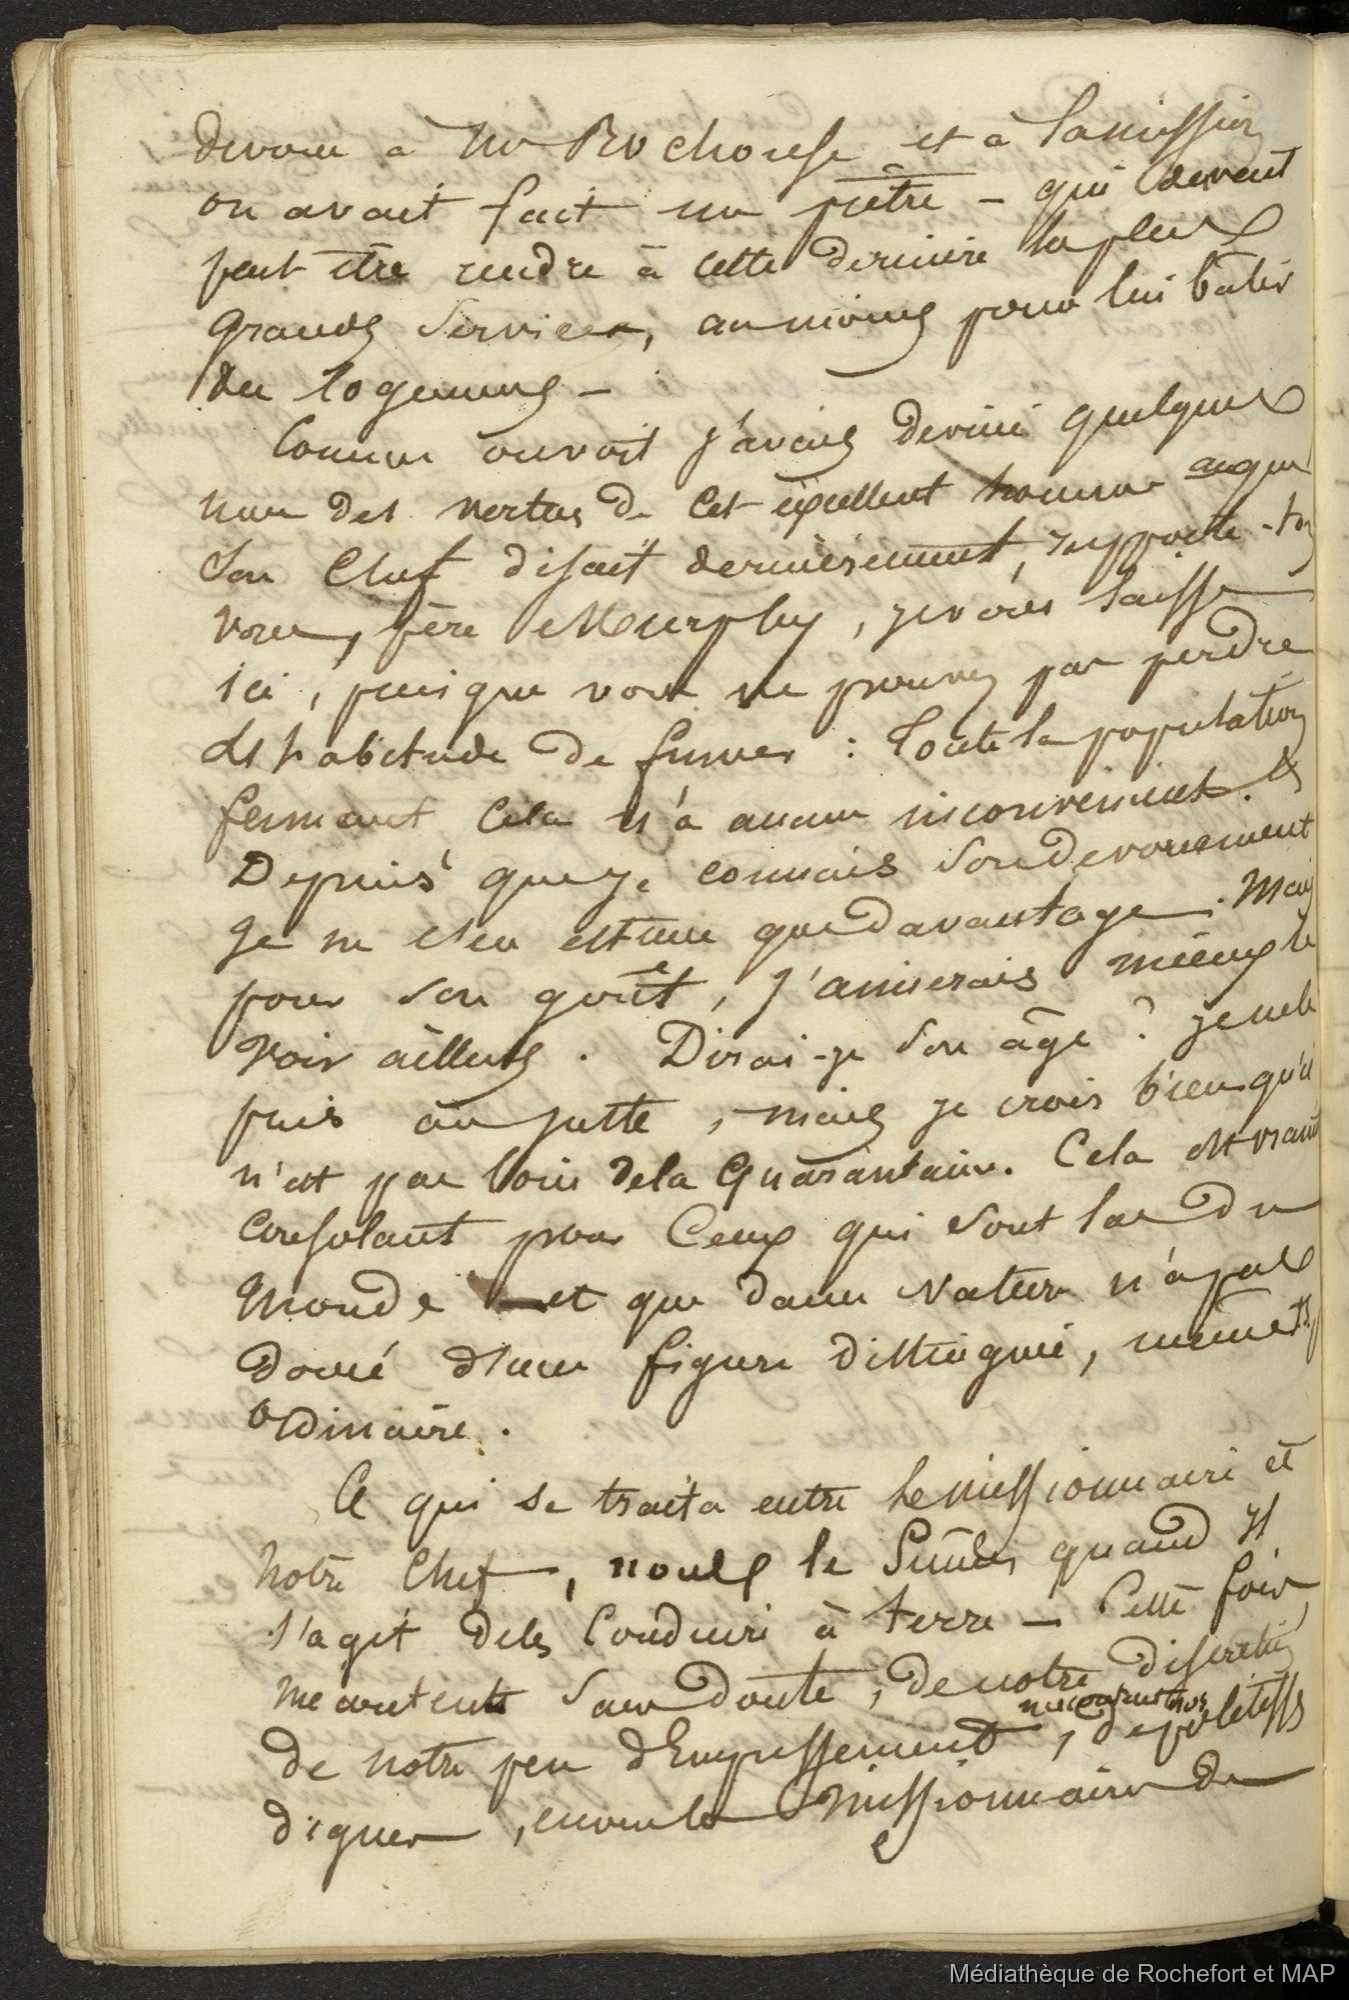 devoue à Mr Rochouse et à la mission
on avait fait un prêtre - qui devait
peut être rendre à cette derniere la plus
grands services, au moins pour lui bâtir
des logemens -
Comme on voit j'avais deviné quelques
une des vertus de cet excellent homme auquel
son Chef disait dernièrement,
vous, père Murphy, je vous laisse
ici, puisque vous ne pouvez pas perdre
l'habitude de fumer : Toute la population
fumant cela n'a aucun inconvenient.
Depuis que je connais son devouement
Je ne l'en estime que davantage. Mais
pour son goût, j'aimerais mieux le
voir ailleurs. Dirai-je son âge ? je ne le
puis au juste, mais je crois bien qu'il
n'est pas loin de la Quarantaine. Cela est vraiment
consolant pour Ceux qui sont las du
Monde et que dame Nature n'a pas
doué d'une figure distinguée, même
ordinaire.
Ce qui se traita entre le missionnaire et
notre Chef, nous le sûmes quand il
s'agit de les Conduire à terre - Cette fois,
mecontents sans doute, de notre discretion
de notre peu d'Empressement, de politesse
dignes, le Missionnaire de